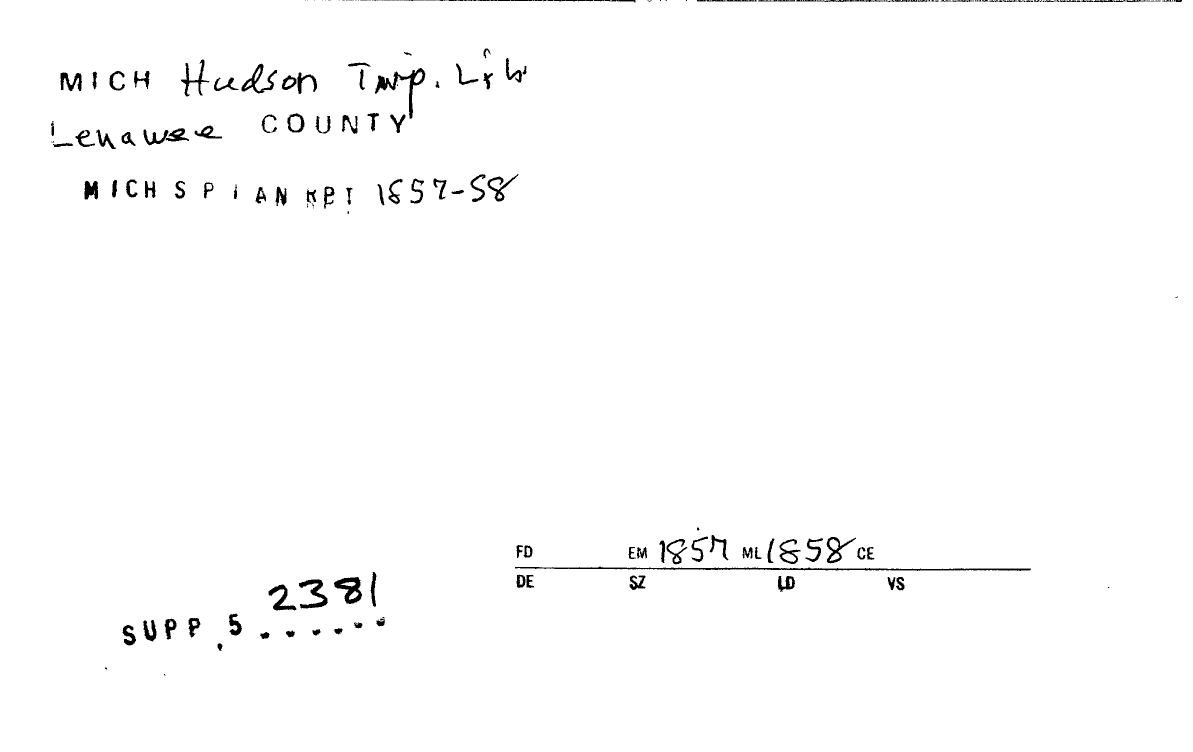 MICH Hudson Twp. Lib
Lenawee COUNTY
MICH S P I AN RPT 1857-58
FD EM 1857 ML 1858 CE
DE SZ LD VS
2381
SUPP.5......